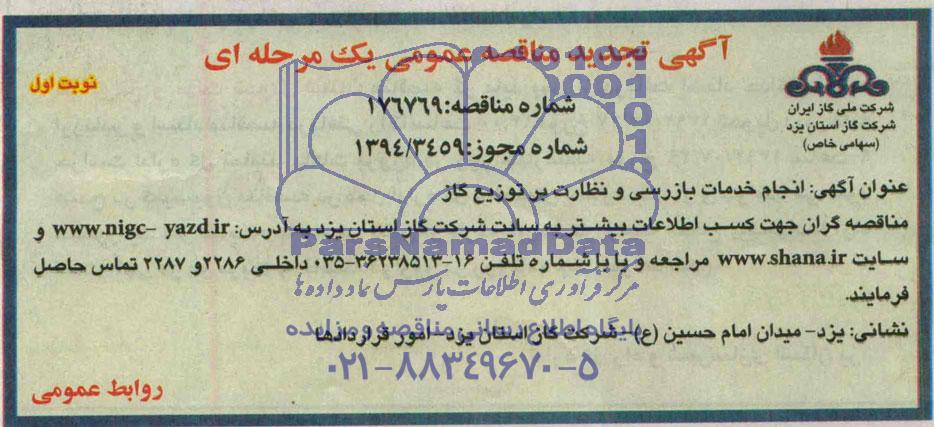 آگهی تجدید مناقصه عمومی یک مرحله ای
نوبت اول
شرکت ملی گاز ایران
شرکت گاز استان یزد
(سهامی خاص)
شماره مناقصه:۱۷۶۷۶۹
شماره مجوز:۱۳۹۴/۳۴۵۹
عنوان آگهی: انجام خدمات بازرسی و نظارت بر توزیع گاز
مناقصه گران جهت کسب اطلاعات بیشتر به سایت شرکت گاز استان یزد به آدرس: www.nigc- yazd.ir و
سایت www.shana.ir مراجعه و یا با شماره تلفن ۱۶-۳۶۲۳۸۵۱۳-۰۳۵ داخلی ۲۲۸۶و ۲۲۸۷ تماس حاصل
فرمایند.
نشانی: یزد- میدان امام حسین (ع)- شرکت گاز استان یزد- امور قراردادها
روابط عمومی
ParsNamadData
مرکز فرآوری اطلاعات پارس نماد داده ها
پایگاه اطلاع رسانی مناقصه و مزایده
۰۲۱-۸۸۳۴۹۶۷۰-۵